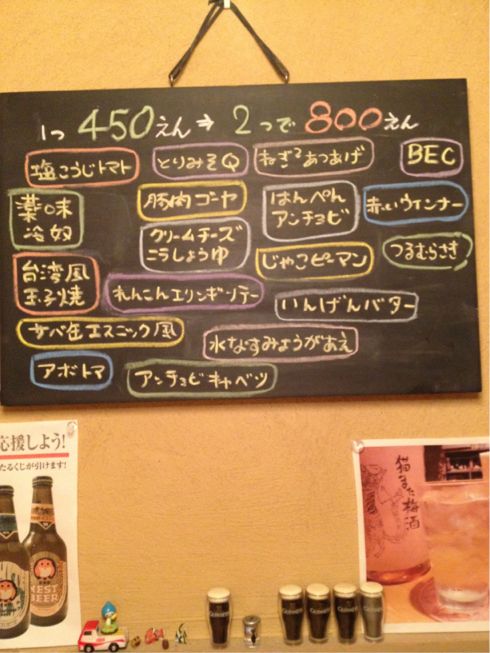 1つ 450えん→2つで800えん
塩こうじトマト
とりみそQ
ねぎあつあげ
BEC
薬味
冷奴
豚肉ゴーヤ
はんぺん
アンチョビ
赤いウインナー
クリームチーズ
こうしょうゆ
じゃこピーマン
つるむらさき
台湾風
玉子焼
れんこんエリンギソテー
いんげんバター
サバ缶エスニック風
水なすみょうがあえ
アボトマ
アンチョビキャベツ
応援しよう!
たるくじが引けます!
NEST
BEER
猫また梅酒
GUINNESS
GUINNESS
GUINNESS